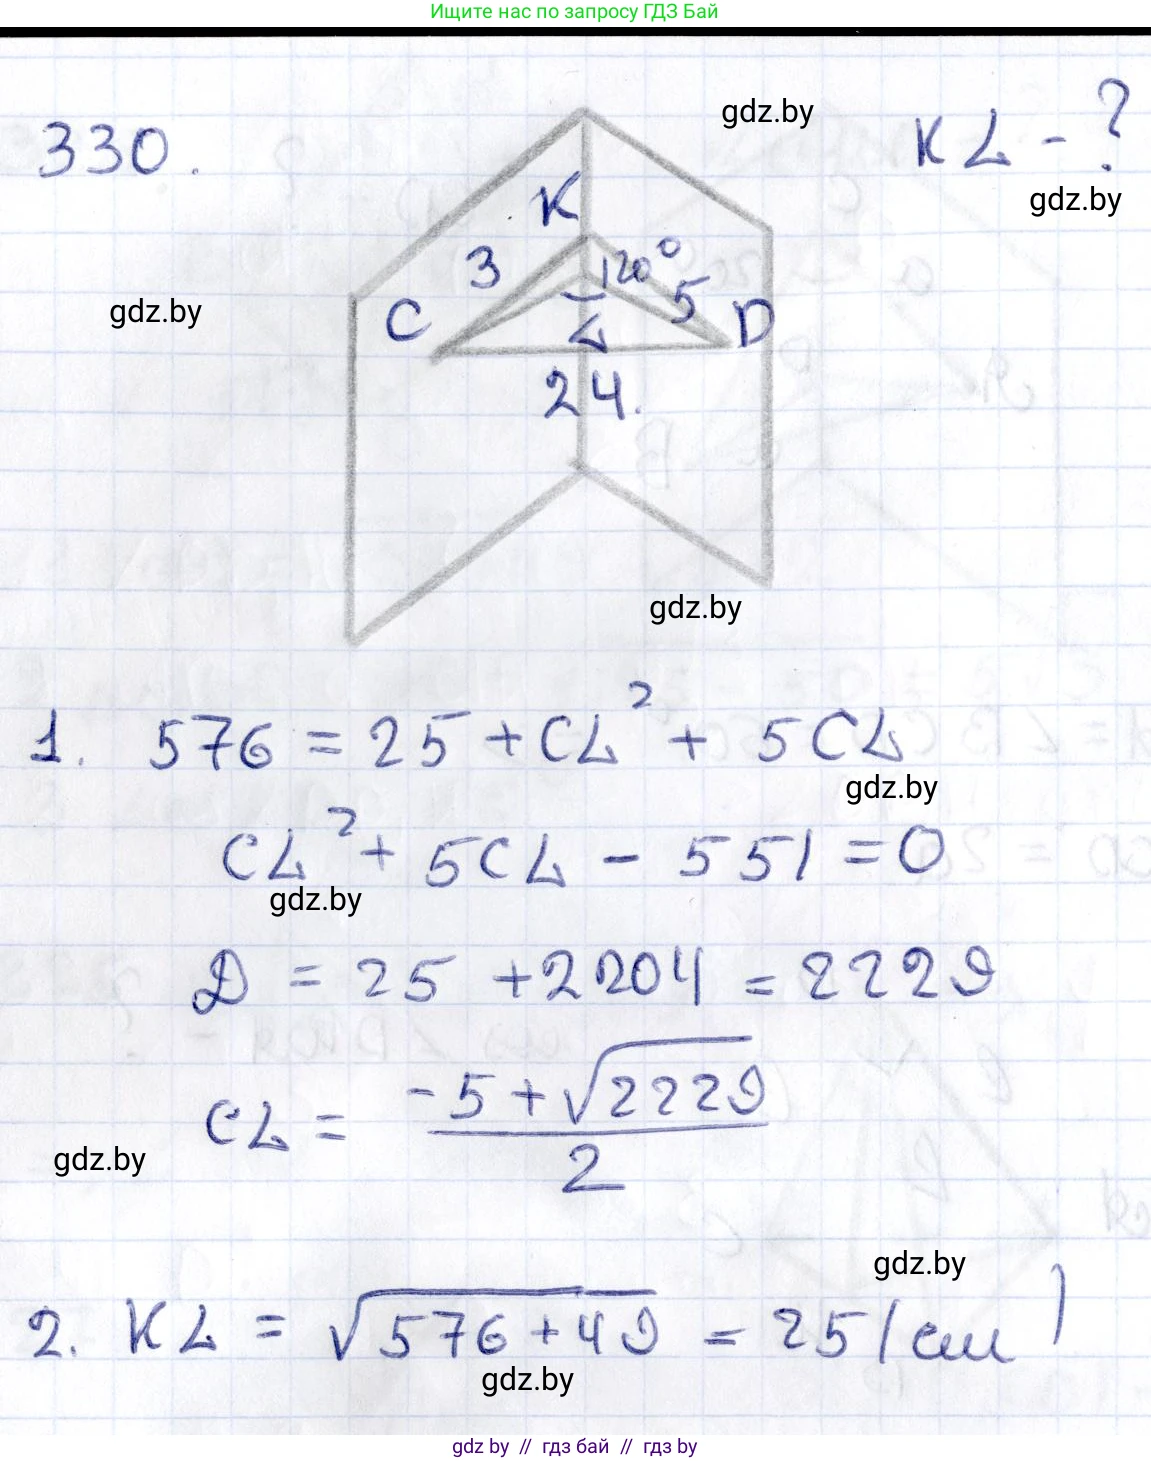 Ищите нас по запросу ГДЗ Бай
330.
gdz.by
KL - ?
gdz.by
K
3
120°
5
gdz.by
C
L
D
24.
gdz.by
1. 576 = 25 + CL² + 5CL
gdz.by
CL² + 5CL - 551 = 0
gdz.by
D = 25 + 2204 = 2229
CL = (-5 + √2229) / 2
gdz.by
gdz.by
2. KL = √576 + 49 = 25 (см)
gdz.by
gdz by // гдз бай // гдз by